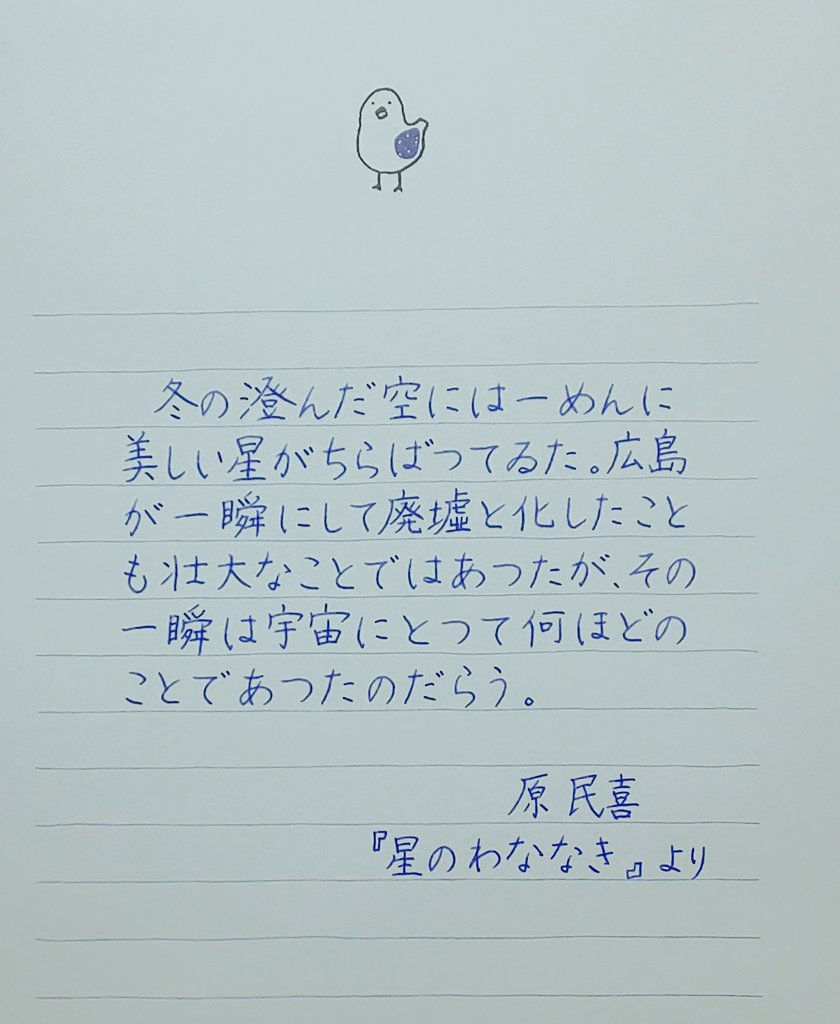 冬の澄んだ空には一めんに
美しい星がちらばつてゐた。広島
が一瞬にして廃墟と化したこと
も壮大なことではあつたが、その
一瞬は宇宙にとつて何ほどの
ことであつたのだらう。
原 民喜
『星のわななき』より